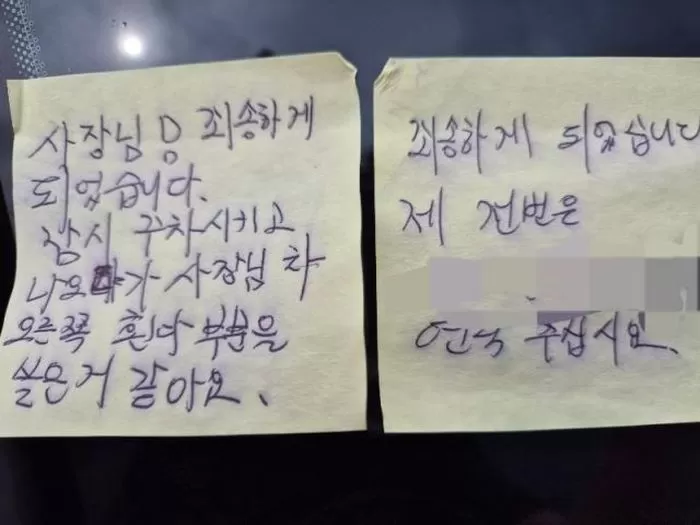 사장님 죄송하게
되었습니다.
잠시 주차시키고
나오다가 사장님 차
오른쪽 흔다 부분을
실은거 같아요.
죄송하게 되었습니다
제 전번은
연락 주십시요.